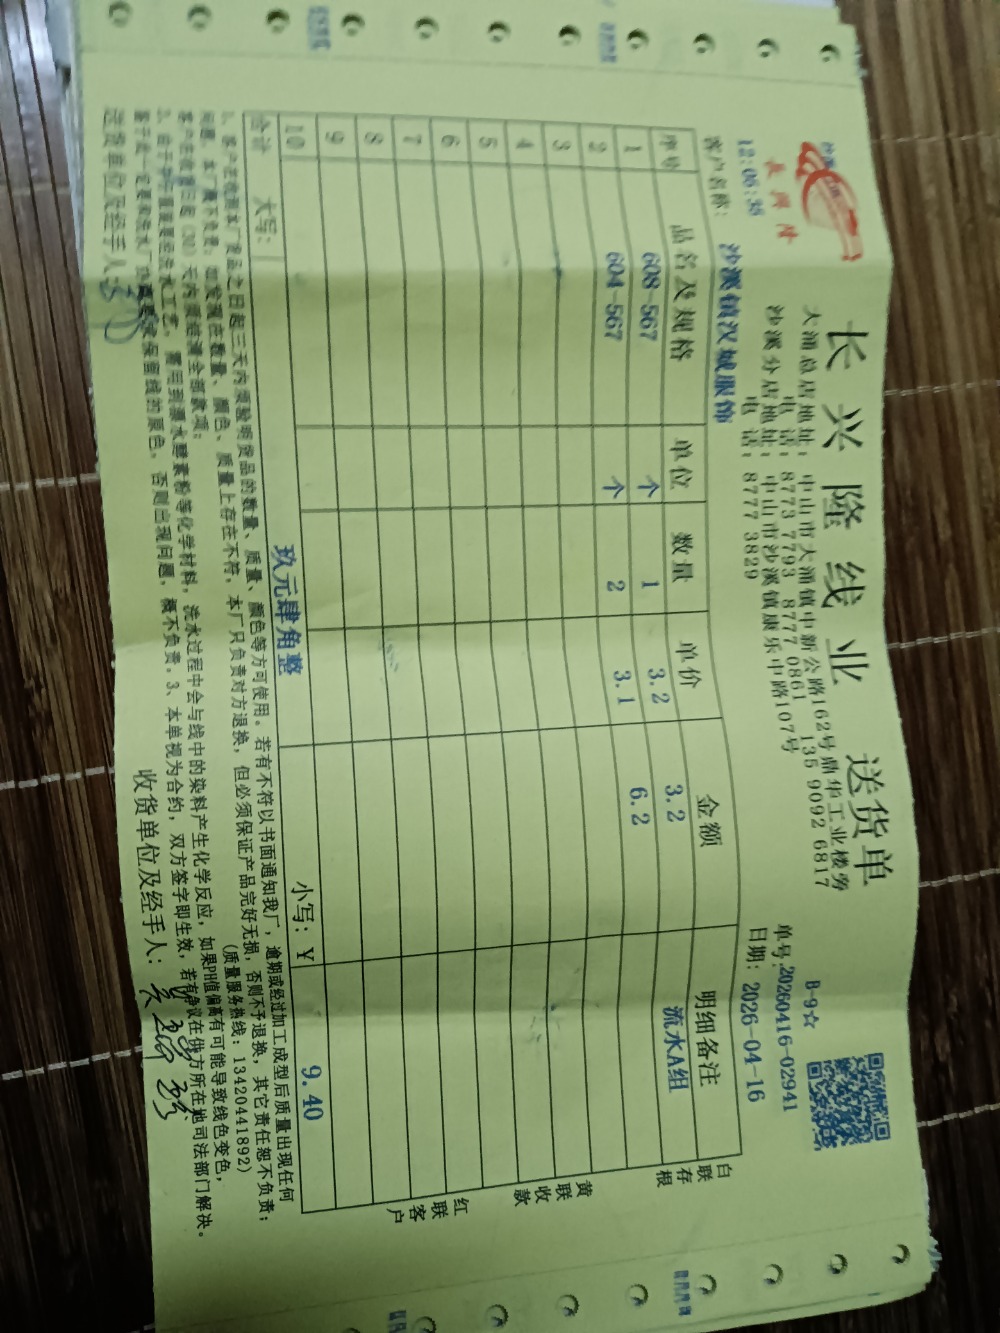 长兴隆线业 送货单
大涌总店地址：中山市大涌镇中新公路162号鼎华工业楼旁
电话：8773 7793 8777 0861 135 9092 6817
沙溪分店地址：中山市沙溪镇康乐中路107号
电话：8777 3829
B-9☆
单号:20260416-02941
12:05:35
日期：2026-04-16
客户名称：沙溪镇汉城服饰
序号 品名及规格 单位 数量 单价 金额 明细备注
1 608-567 个 1 3.2 3.2 流水A组
2 604-567 个 2 3.1 6.2
3
4
5
6
7
8
9
10
合计 大写：玖元肆角整 小写：¥ 9.40
白联存根
黄联收款
红联客户
1、客户在收到本厂货品之日起三天内须验明货品的数量、质量、颜色等方可使用。若有不符以书面通知我厂，逾期或经过加工成型后质量出现任何
问题，本厂概不负责；如发现在数量、颜色、质量上存在不符，本厂只负责对方退换，但必须保证产品完好无损，否则不予退换，其它责任恕不负责；
客户在收货日起（30）天内须结清全部款项； （质量服务热线：13420441892）
2、由于牛仔服装要经洗水工艺，需用到漂水酵素粉等化学材料，洗水过程中会与线中的染料产生化学反应，如果PH值偏高有可能导致线色变色，
鉴于此一定要和洗水厂强调要求保留线的原色，否则出现问题，概不负责。3、本单视为合约，双方签字即生效，若有争议在供方所在地司法部门解决。
送货单位及经手人： 收货单位及经手人：